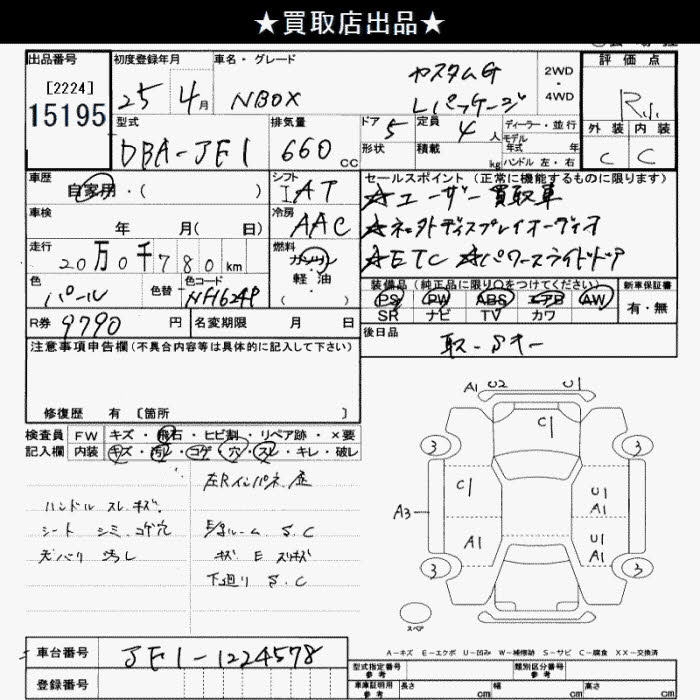 ★買取店出品★
出品番号
[2224]
15195
初度登録年月
25 4月
車名・グレード
NBOX
カスタムG
Lパッケージ
2WD
・
4WD
評価点
外装 内装
C C
型式
DBA-JF1
排気量
660 cc
ドア
5
形状
定員
4 人
積載
kg
ディーラー・並行
モデル
年式 年
ハンドル 左・右
車歴
自家用・( )
シフト
IAT
セールスポイント(正常に機能するものに限ります)
☆ユーザー買取車
☆ネオトディスプレイオーディオ
☆ETC ☆パワースライドドア
車検
年 月( 日)
冷房
AAC
走行
20万0千780km
燃料
ガソリン
・
軽油
・
( )
色
パール
色替
色コード
NH624P
装備品(純正品に限り○をつけてください)
PS PW ABS エアB AW
SR ナビ TV カワ
新車保証書
有・無
R券
9790 円
名変期限 月 日
後日品
取-Sキー
注意事項申告欄(不具合内容等は具体的に記入して下さい)
修復歴 有 [箇所 ]
検査員
記入欄
FW キズ・飛石・ヒビ割・リペア跡・×要
内装 キズ・汚レ・コゲ・穴・スレ・キレ・破レ
左Rインパネ歪
ハンドル スレキズ
シート シミ.コゲ穴
天バリ 汚レ
S.C
キズ E スリキズ
下廻り S.C
A1 U2 U1
C1
3 3
C1 U1
A1
A3
A1 U1
A1
3 3
スペア
A-キズ E-エクボ U-凹み W-補修跡 S-サビ C-腐食 XX-交換済
車台番号
JF1-1224578
登録番号
型式指定番号
参考
類別区分番号
参考
車庫証明用
参考
長さ cm 幅 cm 高さ cm